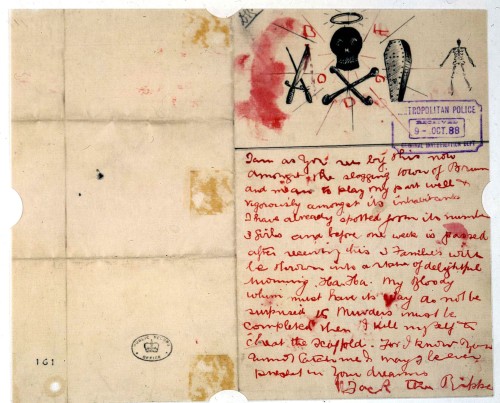 TROPOLITAN POLICE
RECEIVED
9-OCT.88
CRIMINAL INVESTIGATION DEPT
I am as you see by this now
amongst the slogging town of Brum
and mean to play my part well &
vigorously amongst its inhabitants
I have already spotted from its number
3 girls and before one week is passed
after receiving this 3 Families will
be thrown into a state of delightful
mourning. Ha. Ha. My Bloody
whim must have its way do not be
surprised 15 Murders must be
completed then I kill myself to
cheat the scaffold. For I know you
cannot catch me & I may be even
present in your dreams
Jack the Ripper
161
PUBLIC RECORD
OFFICE